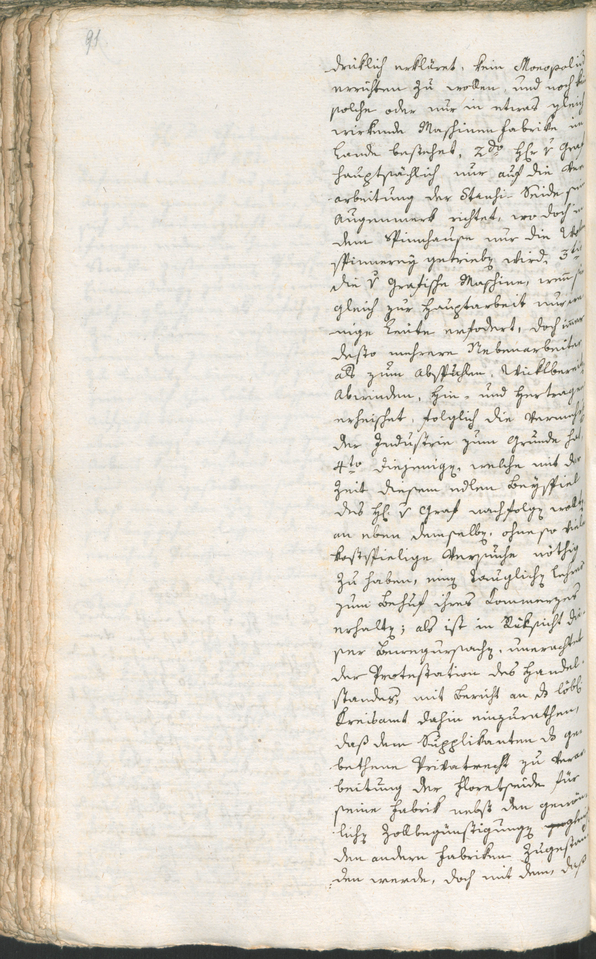 91.
drüklich erkläret, kein Monopoliū
errichten zu wollen, und noch k
solche oder nur in etwas gleich
wirkende Maschinen fabrike im
Lande bestehet, 2do Hr v Graf
hauptsächlich nur auf die Ver
arbeitung der Seide sein
Augenmerk richtet, wo doch in
dem Spinnhause nur die
spinnerey getrieben wird, 3tio
die v Grafische Maschine, wenn sie
gleich zur Hauptarbeit nur we
nige Leute erfodert, doch immer
desto mehrere Nebenarbeiter
als zum Abspuhlen, Wiklberei
Abwinden, hin- und hertragen
erheischet, folglich die Vermeh
der Industrie zum Grunde hat
4to diejenigen, welche mit der
Zeit diesem edlen Beyspiel
des H v Graf nachfolgen wollen
an eben demselben, ohne so viele
kostspielige Versuche nöthig
zu haben, einen tauglichen Lehrer
zum Behuf ihres Commerzes
erhalten; als ist in Rüksicht die
ser Beweguhrsachen, unerachtet
der Protestation des Handel
standes, mit Bericht an ds löbl.
Kreisamt dahin einzurathen,
daß dem Supplikanten ds ge
bethene Privatrecht zu Verar
beitung der Floretseide für
seine Fabrik nebst den gewöhn
lichen Zollbegünstigungen gleich
den andern Fabriken zugestan
den werde, doch mit dem, daß